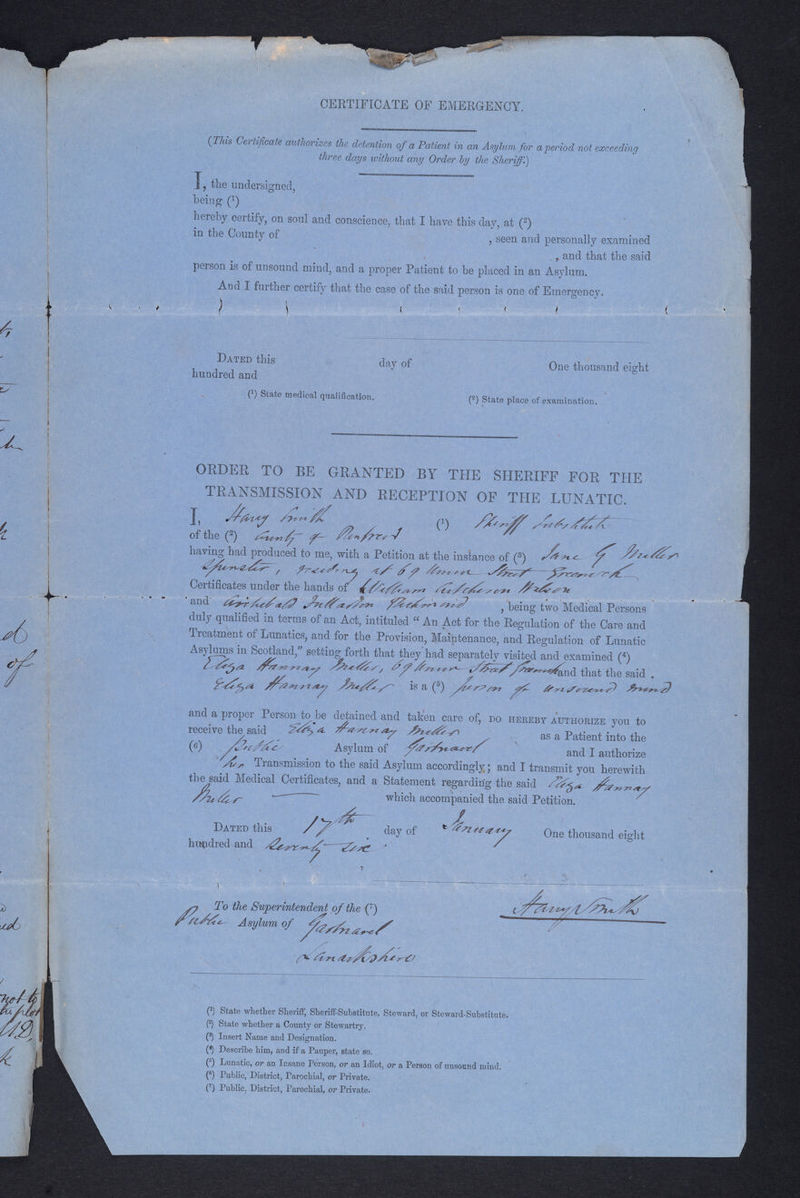 CERTIFICATE OF EMERGENCY.
(This Certificate authorizes the detention of a Patient in an Asylum for a period not exceeding
three days without any Order by the Sheriff.)
I, the undersigned,
being (1)
hereby certify, on soul and conscience, that I have this day, at (2)
in the County of , seen and personally examined
, and that the said
person is of unsound mind, and a proper Patient to be placed in an Asylum.
And I further certify that the case of the said person is one of Emergency.
DATED this day of One thousand eight
hundred and
(1) State medical qualification. (2) State place of examination.
ORDER TO BE GRANTED BY THE SHERIFF FOR THE
TRANSMISSION AND RECEPTION OF THE LUNATIC.
I, Harry Smith (1) Sheriff Substitute
of the (2) County of Renfrew
having had produced to me, with a Petition at the instance of (3) Jane G Miller
Spinster, residing at 69 Union Street Greenock
Certificates under the hands of William Hutcheson Watson
and Archibald Richmond , being two Medical Persons
duly qualified in terms of an Act, intituled "An Act for the Regulation of the Care and
Treatment of Lunatics, and for the Provision, Maintenance, and Regulation of Lunatic
Asylums in Scotland," setting forth that they had separately visited and examined (4)
Eliza Hannay Miller, 69 Union Street Greenock and that the said
Eliza Hannay Miller is a (5) person of unsound mind
and a proper Person to be detained and taken care of, DO HEREBY AUTHORIZE you to
receive the said Eliza Hannay Miller as a Patient into the
(6) Public Asylum of Gartnavel and I authorize
her Transmission to the said Asylum accordingly; and I transmit you herewith
the said Medical Certificates, and a Statement regarding the said Eliza Hannay
Miller — which accompanied the said Petition.
DATED this 17th day of January One thousand eight
hundred and Seventy Six.
Harry Smith
To the Superintendent of the (7)
Public Asylum of Gartnavel
Lanarkshire
(1) State whether Sheriff, Sheriff-Substitute, Steward, or Steward-Substitute.
(2) State whether a County or Stewartry.
(3) Insert Name and Designation.
(4) Describe him, and if a Pauper, state so.
(5) Lunatic, or an Insane Person, or an Idiot, or a Person of unsound mind.
(6) Public, District, Parochial, or Private.
(7) Public, District, Parochial, or Private.